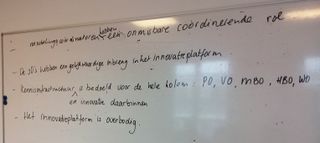 - hebben een onmisbare coördinerende rol
- De JO's hebben een gelijkwaardige inbreng in het innovatieplatform
- Kennisinfrastructuur is bedoeld voor de hele kolom: PO, VO, MBO, HBO, WO
en innovatie daarbinnen
- Het innovatieplatform is overbodig.